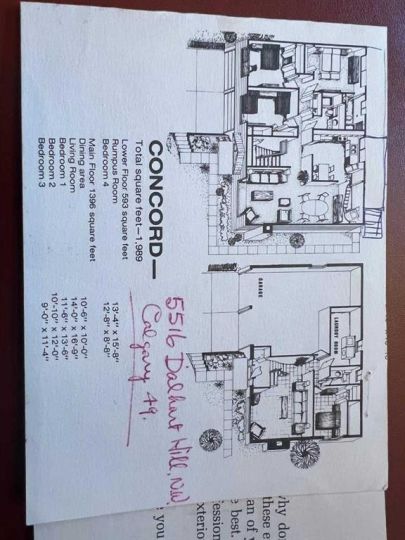 CONCORD—
Total square feet—1,989
Lower Floor 593 square feet
Rumpus Room 13'-4" x 15'-8"
Bedroom 4 12'-8" x 8'-8"
Main Floor 1396 square feet
Dining area 10'-6" x 10'-0"
Living Room 14'-0" x 16'-9"
Bedroom 1 11'-6" x 13'-6"
Bedroom 2 10'-10" x 12'-0"
Bedroom 3 9'-0" x 11'-4"
5516 Dalhart Hill, N.W.
Calgary 49.
GARAGE
LAUNDRY ROOM
hy do
these e
an of
e best.
fession
exterio
you